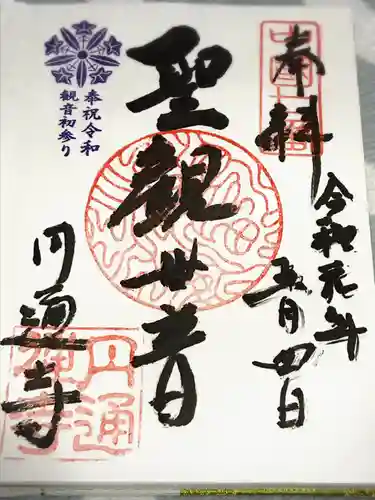 奉拝
令和元年
五月四日
聖観世音
奉祝令和
観音初参り
円通寺